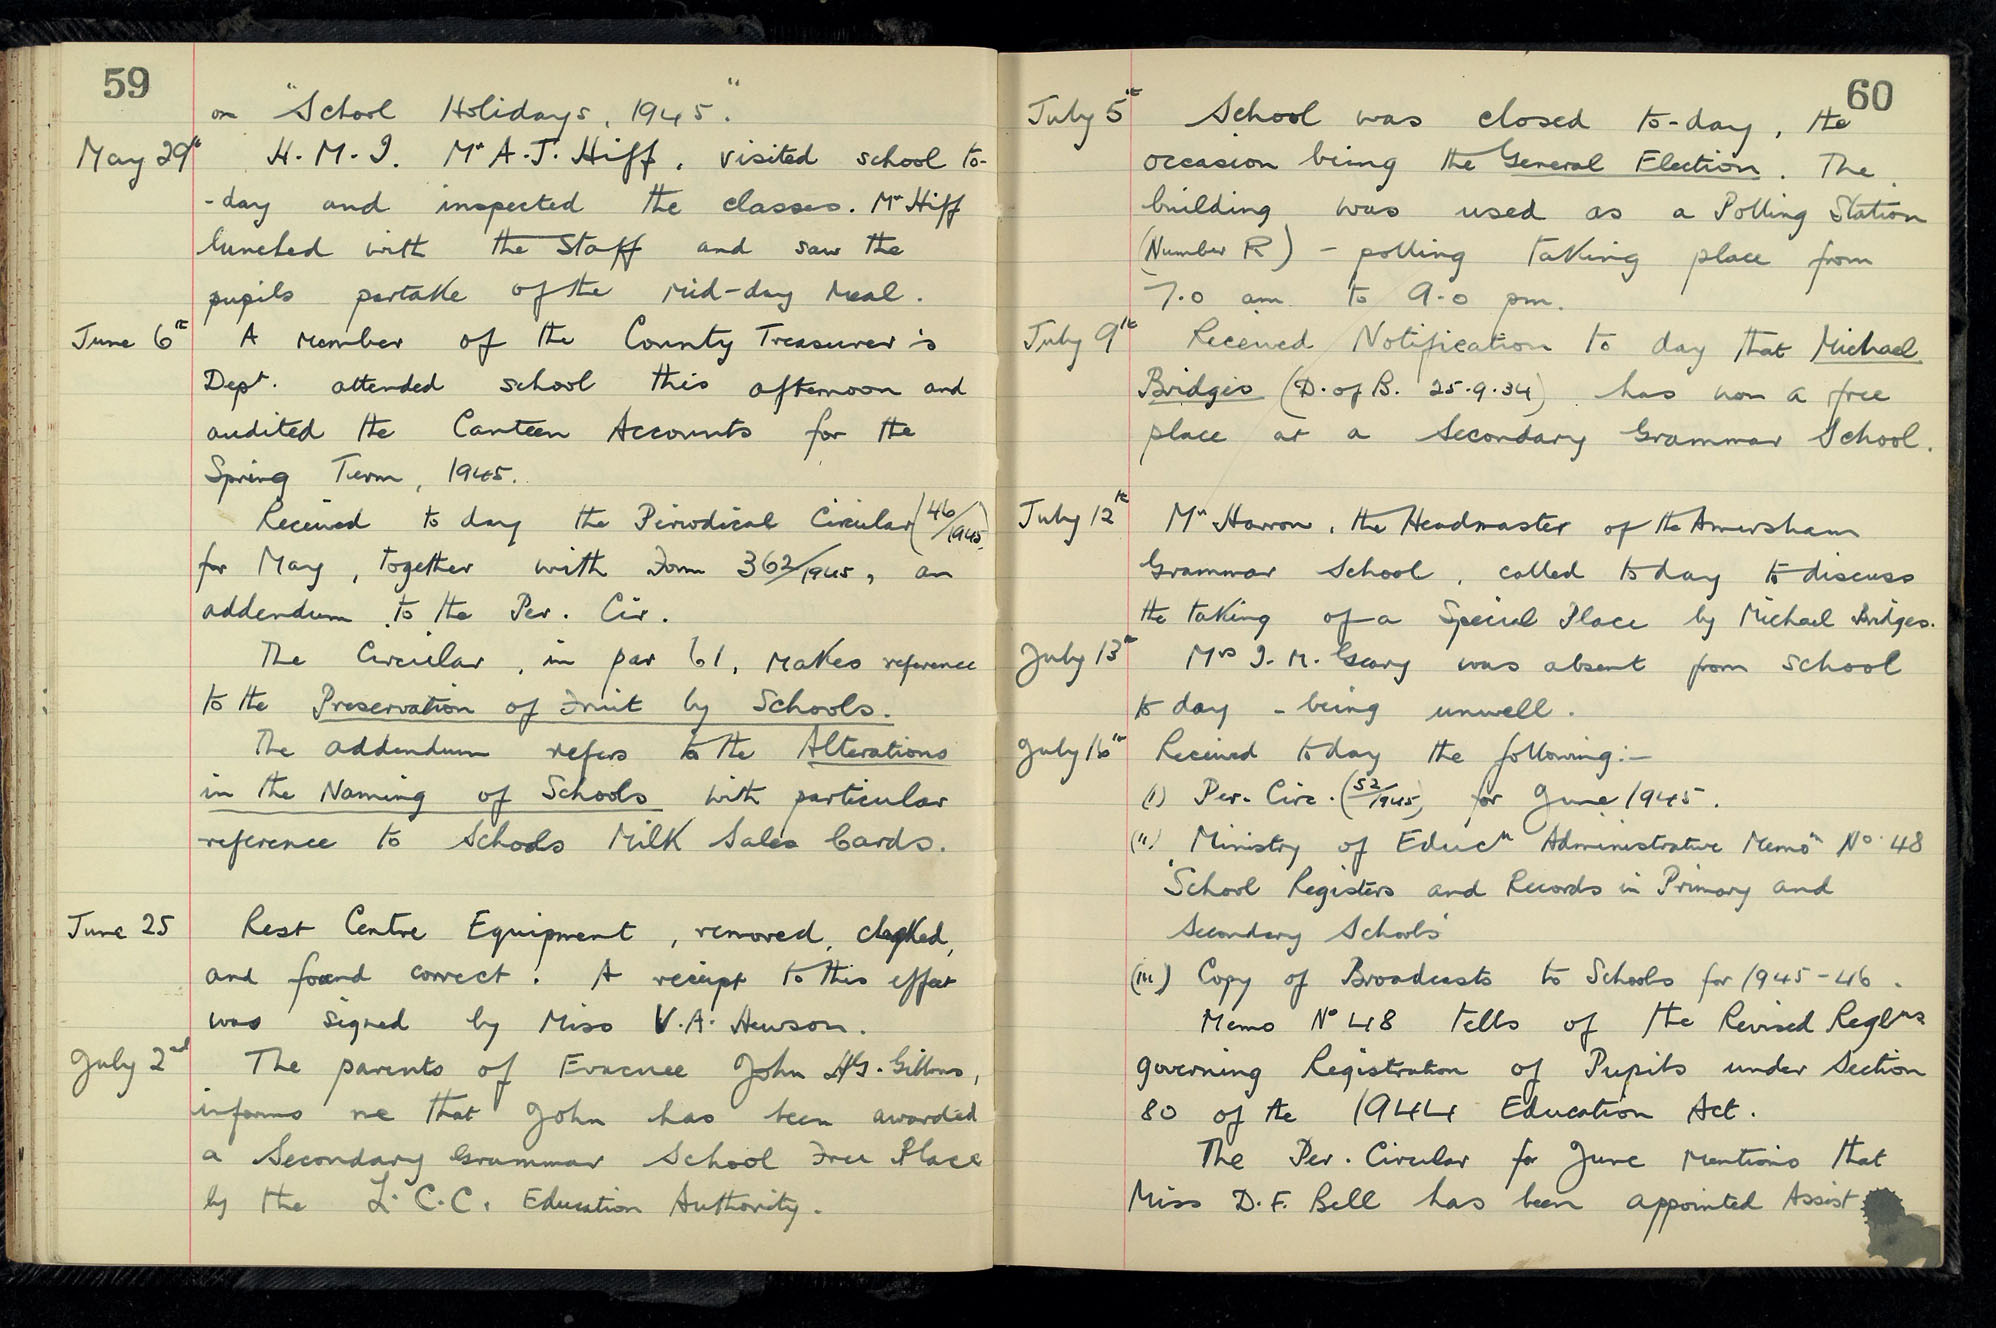 59
on "School Holidays, 1945."
May 29th H. M. I. Mr A. J. Hiff, visited school to-
-day and inspected the classes. Mr Hiff
lunched with the Staff and saw the
pupils partake of the Mid-day Meal.
June 6th A Member of the County Treasurer's
Dept. attended school this afternoon and
audited the Canteen Accounts for the
Spring Term, 1945.
Received to day the Periodical Circular (46/1945)
for May, together with Form 362/1945, an
addendum to the Per. Cir.
The Circular, in par 61, makes reference
to the Preservation of Fruit by Schools.
The addendum refers to the Alterations
in the Naming of Schools with particular
reference to Schools Milk Sales Cards.
June 25 Rest Centre Equipment, removed, checked,
and found correct. A receipt to this effect
was signed by Miss V. A. Hewson.
July 2nd The parents of Evacuee John G. Gibbons,
informs me that John has been awarded
a Secondary Grammar School Free Place
by the L. C. C. Education Authority.
60
July 5th School was closed to-day, the
occasion being the General Election. The
building was used as a Polling Station
(Number R) - polling taking place from
7.0 am to 9.0 pm.
July 9th Received Notification to day that Michael
Bridges (D. of B. 25.9.34) has won a free
place at a Secondary Grammar School.
July 12th Mr Harrow, the Headmaster of the Amersham
Grammar School, called to day to discuss
the taking of a Special Place by Michael Bridges.
July 13th Mrs I. M. Geary was absent from school
to day - being unwell.
July 16th Received to day the following:-
(i) Per. Circ. (52/1945) for June 1945.
(ii) Ministry of Educn Administrative Memo No 48
'School Registers and Records in Primary and
Secondary Schools'
(iii) Copy of Broadcasts to Schools for 1945-46.
Memo No 48 tells of the Revised Reglns
governing Registration of Pupils under Section
80 of the 1944 Education Act.
The Per. Circular for June mentions that
Miss D. F. Bell has been appointed Assist